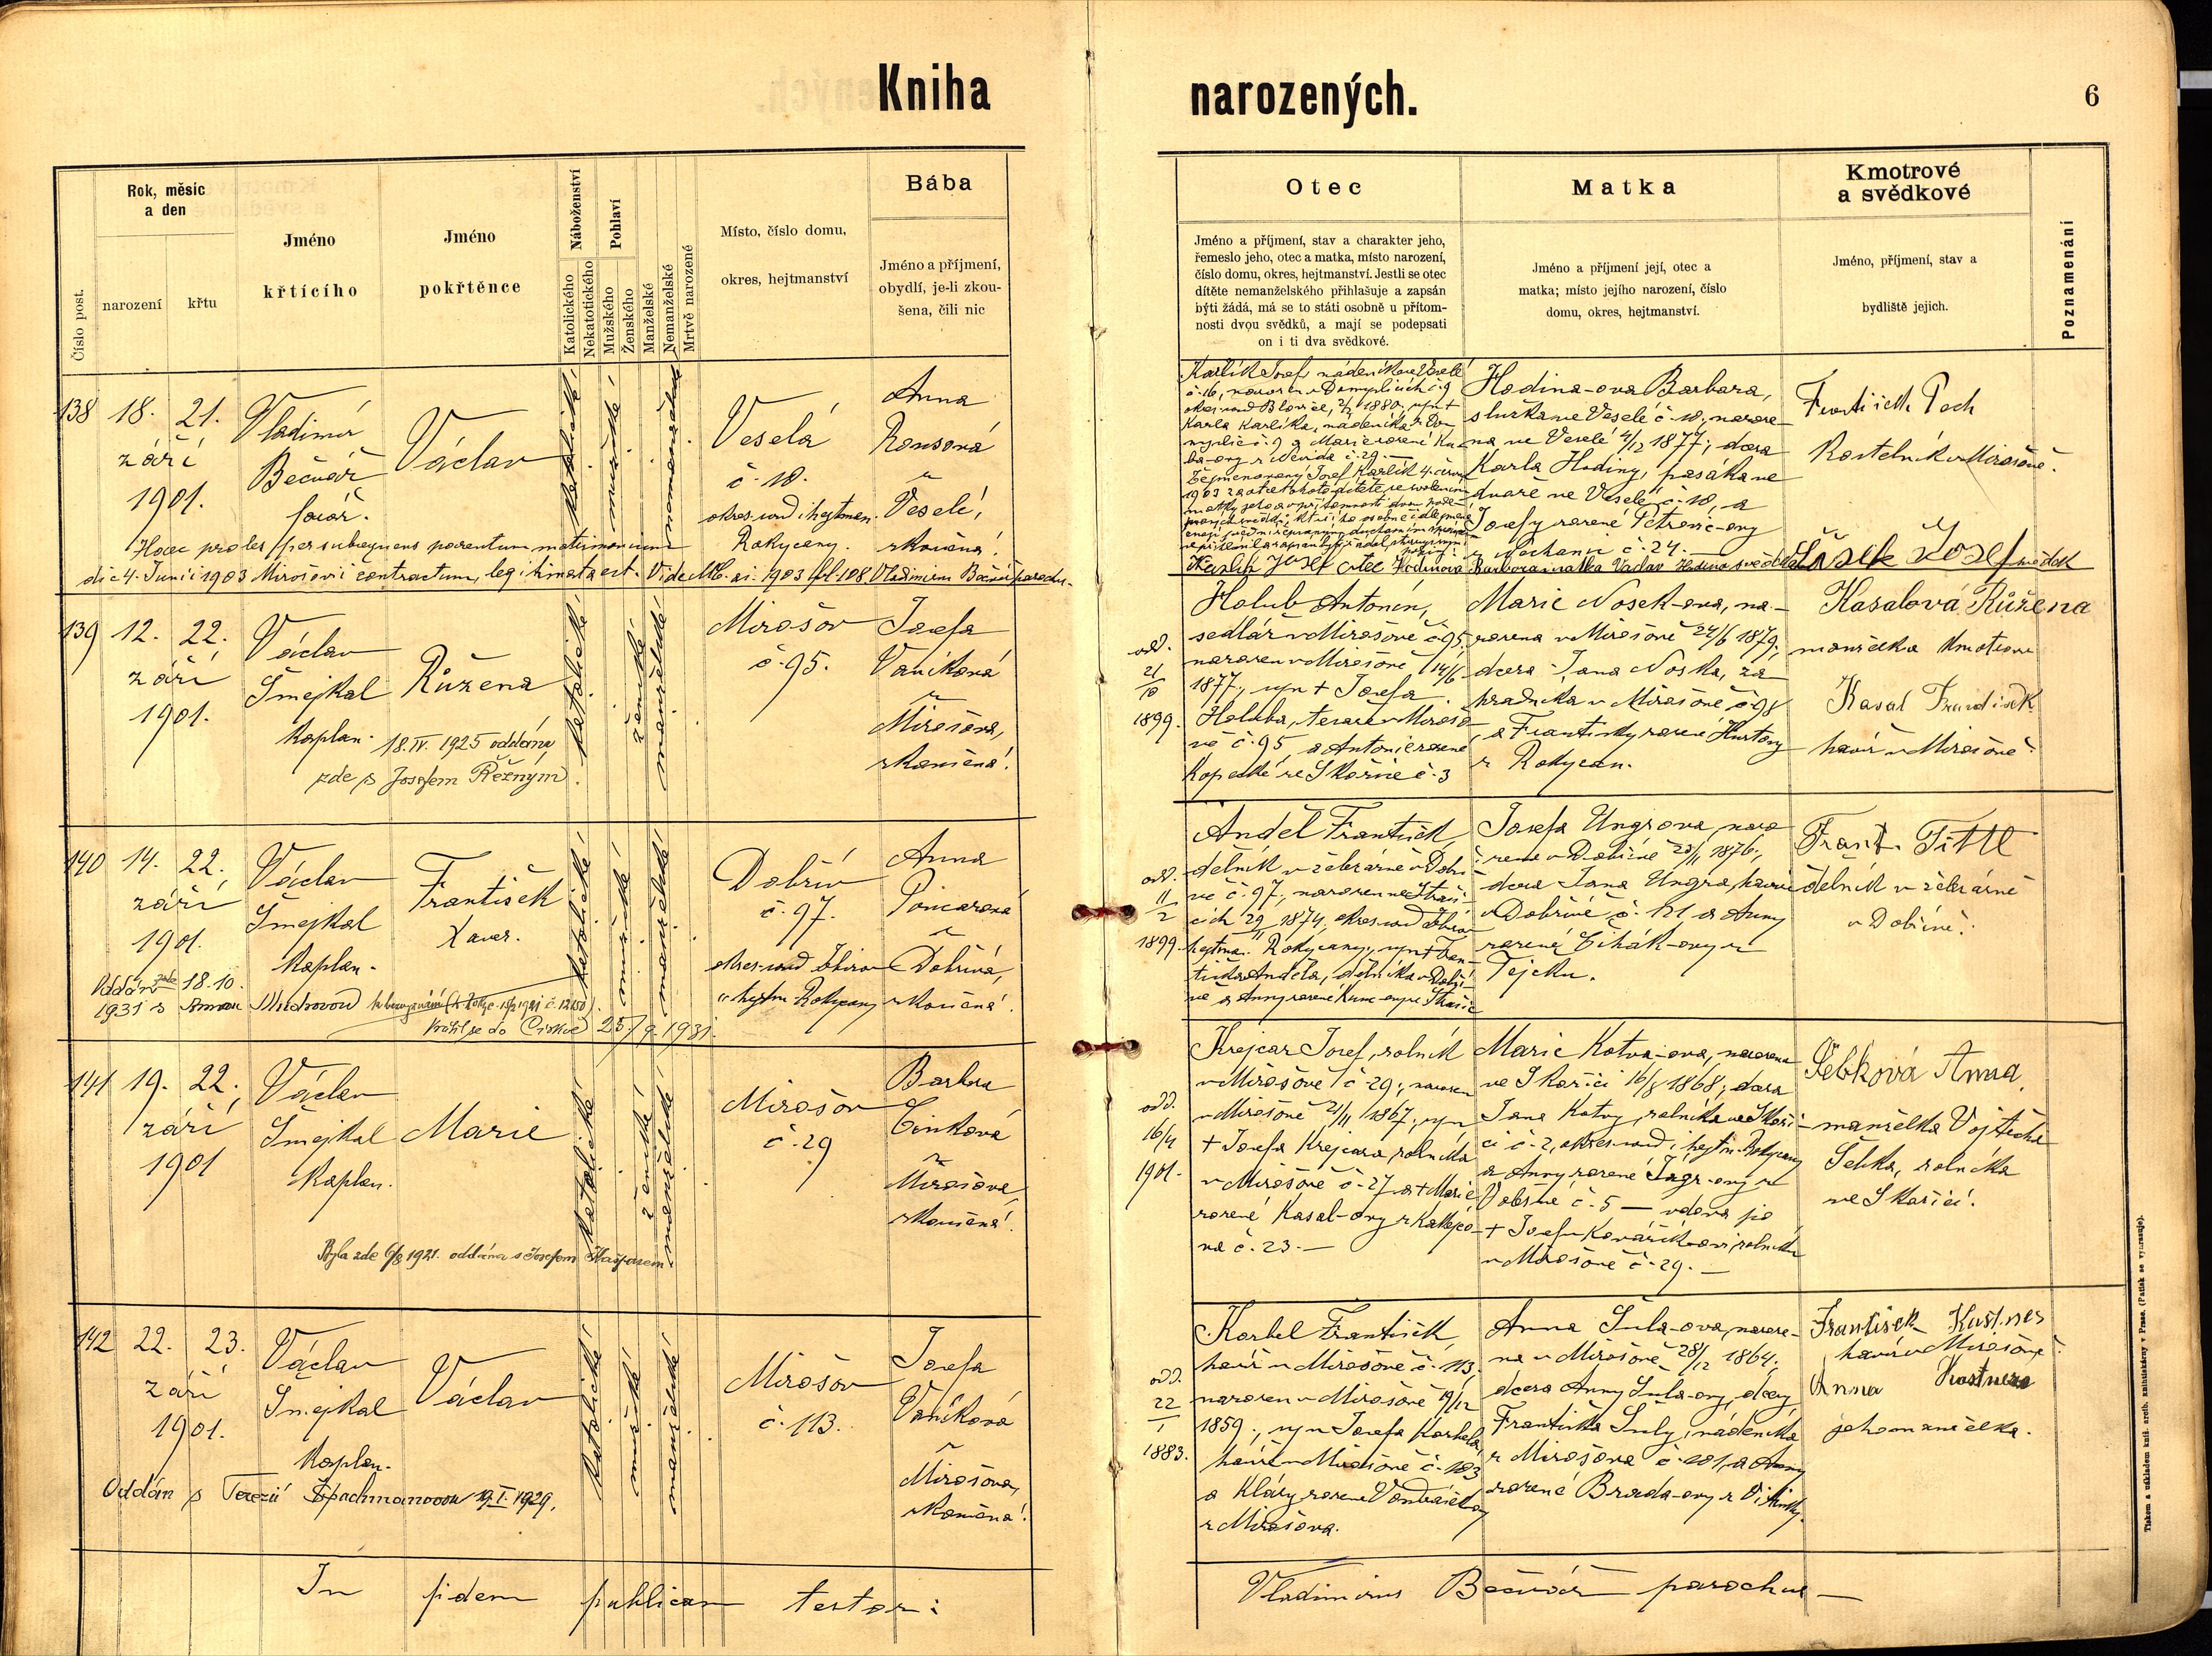 Kniha narozených.
6
Číslo post.
Rok, měsíc
a den
narození
křtu
Jméno
křtícího
Jméno
pokřtěnce
Náboženství
Katolického
Nekatotického
Pohlaví
Mužského
Ženského
Manželské
Nemanželské
Mrtvě narozené
Místo, číslo domu,
okres, hejtmanství
Bába
Jméno a příjmení,
obydlí, je-li zkou-
šena, čili nic
Otec
Jméno a příjmení, stav a charakter jeho,
řemeslo jeho, otec a matka, místo narození,
číslo domu, okres, hejtmanství. Jestli se otec
dítěte nemanželského přihlašuje a zapsán
býti žádá, má se to státi osobně u přítom-
nosti dvou svědků, a mají se podepsati
on i ti dva svědkové.
Matka
Jméno a příjmení její, otec a
matka; místo jejího narození, číslo
domu, okres, hejtmanství.
Kmotrové
a svědkové
Jméno, příjmení, stav a
bydliště jejich.
Poznamenání
138
18. 21.
září
1901.
Vladimír
Bečvář
farář.
Václav
katolické
mužské
nemanželské
Veselá
č. 18.
okres. soud i hejtman.
Rokycany.
Anna
Veselé,
zkoušená.
Haec proles per subsequens parentum matrimonium
die 4. Junii 1903 Mirošovii contractum, legitimata est. Vide M. 1903 fol. 108. Vladimirus Bečvář parochus.
Karlík Josef nádeník ve Veselé
č. 16, narozen v
1880, syn
Karla Karlíka, nádeníka
Josef Karlík 4. června
1903 za otce
Hodina-ova Barbara,
služka ve Veselé č. 18, naroze-
na ve Veselé 4/12 1877, dcera
Karla Hodiny, pasáka ve
dvoře ve Veselé č. 18, a
Josefy rozené Petrovic-ovy
č. 24.
František Pech
Kostelník v Mirošově.
Karlík Josef otec Hodinova Barbora matka Vaclav Hodina svědek Lašek Josef svědek
139
12. 22.
září
1901.
Václav
Šmejkal
kaplan.
Růžena
18. IV. 1925 oddána
zde s Josefem Režným.
katolické
ženské
manželské
Mirošov
č. 95.
Josefa
Vaníková
z
Mirošova,
zkoušená.
odd.
21
10
1899.
Holub Antonín,
sedlář v Mirošově č. 95,
narozen v Mirošově 14/6
1877, syn † Josefa
Holuba, tesaře v Mirošo-
vě č. 95, a Antonie rozené
Kopecké ze Skořice č. 3
Marie Nosek-ova, na-
rozena v Mirošově 24/6 1879,
dcera Jana Noska, za-
hradníka v Mirošově č. 98
a Františky rozené
z Rokycan.
Kasalová Růžena
manželka kmotrova
Kasal František
havíř v Mirošově.
140
14. 22.
září
1901.
Václav
Šmejkal
kaplan.
František
Xaver.
katolické
mužské
manželské
Dobřív
č. 97.
okres. soud Zbirov
hejtm. Rokycany
Anna
z
Dobřívá,
zkoušená.
Oddán zde 18.10.
1931 s
Vrátil se do Církve 25/9. 1931.
odd.
11
2
1899.
Anděl František
dělník v železárně v Dobří-
vě č. 97, narozen ve Straši-
cích 29/11 1874, okres. soud Zbirov
hejtman. Rokycany, syn † Fran-
tiška Anděla, dělníka v Dobří-
vě a Anny rozené Kunc-ovy ze Strašic
Josefa Ungrova, naro-
zena v Dobřívě 1876,
dcera Jana Ungra, havíře
v Dobřívě č. 121 a Anny
rozené Cihák-ovy z
Tejcku.
Frant. Tittl
dělník v železárně
v Dobřívě.
141
19. 22.
září
1901
Václav
Šmejkal
kaplan.
Marie
katolické
ženské
manželské
Mirošov
č. 29
Barbora
Činková
z
Mirošova,
zkoušená.
Byla zde 6/8 1921. oddána s Josefem Kašparem.
odd.
16/4
1901.
Krejcar Josef, rolník
v Mirošově č. 29, narozen
v Mirošově 21/11 1867, syn
† Josefa Krejcara, rolníka
v Mirošově č. 27 a † Marie
rozené Kasal-ovy z Kakejco-
va č. 23.
Marie Kotva-ova, narozena
ve Skořici 16/8 1868, dcera
Jana Kotvy, rolníka ve Skoři-
ci č. 2, okres. soud i hejtm. Rokycany
a Anny rozené Jägr-ovy z
č. 5 — vdova po
† Josefu Kovaříkovi, rolníku
v Mirošově č. 29.
Šebková Anna,
manželka Vojtěcha
Šebka, rolníka
ve Skořici.
142
22. 23.
září
1901.
Václav
Šmejkal
kaplan.
Václav
katolické
mužské
manželské
Mirošov
č. 113.
Josefa
Vaníková
z
Mirošova,
zkoušená.
Oddán s Terezií Špachmanovou 19. I. 1929.
odd.
22
1
1883.
Korbel František,
havíř v Mirošově č. 113,
narozen v Mirošově 19/12
1859, syn Josefa Korbela,
havíře v Mirošově č. 103
a Kláry rozené Vondrášek-ovy
z Mirošova.
Anna Šula-ova, naroze-
na v Mirošově 28/12 1864,
dcera Anny Šula-ovy, dcery
Františka Šuly, nádeníka
z Mirošova č. 101, a Anny
rozené Brada-ovy z Vitinky.
František Kustner
havíř v Mirošově.
Anna Kostnera
jeho manželka.
In fidem publicam testor:
Vladimirus Bečvář parochus
Tiskem a nákladem kníž. arcib. knihtiskárny v Praze. (Patisk se vyhrazuje).